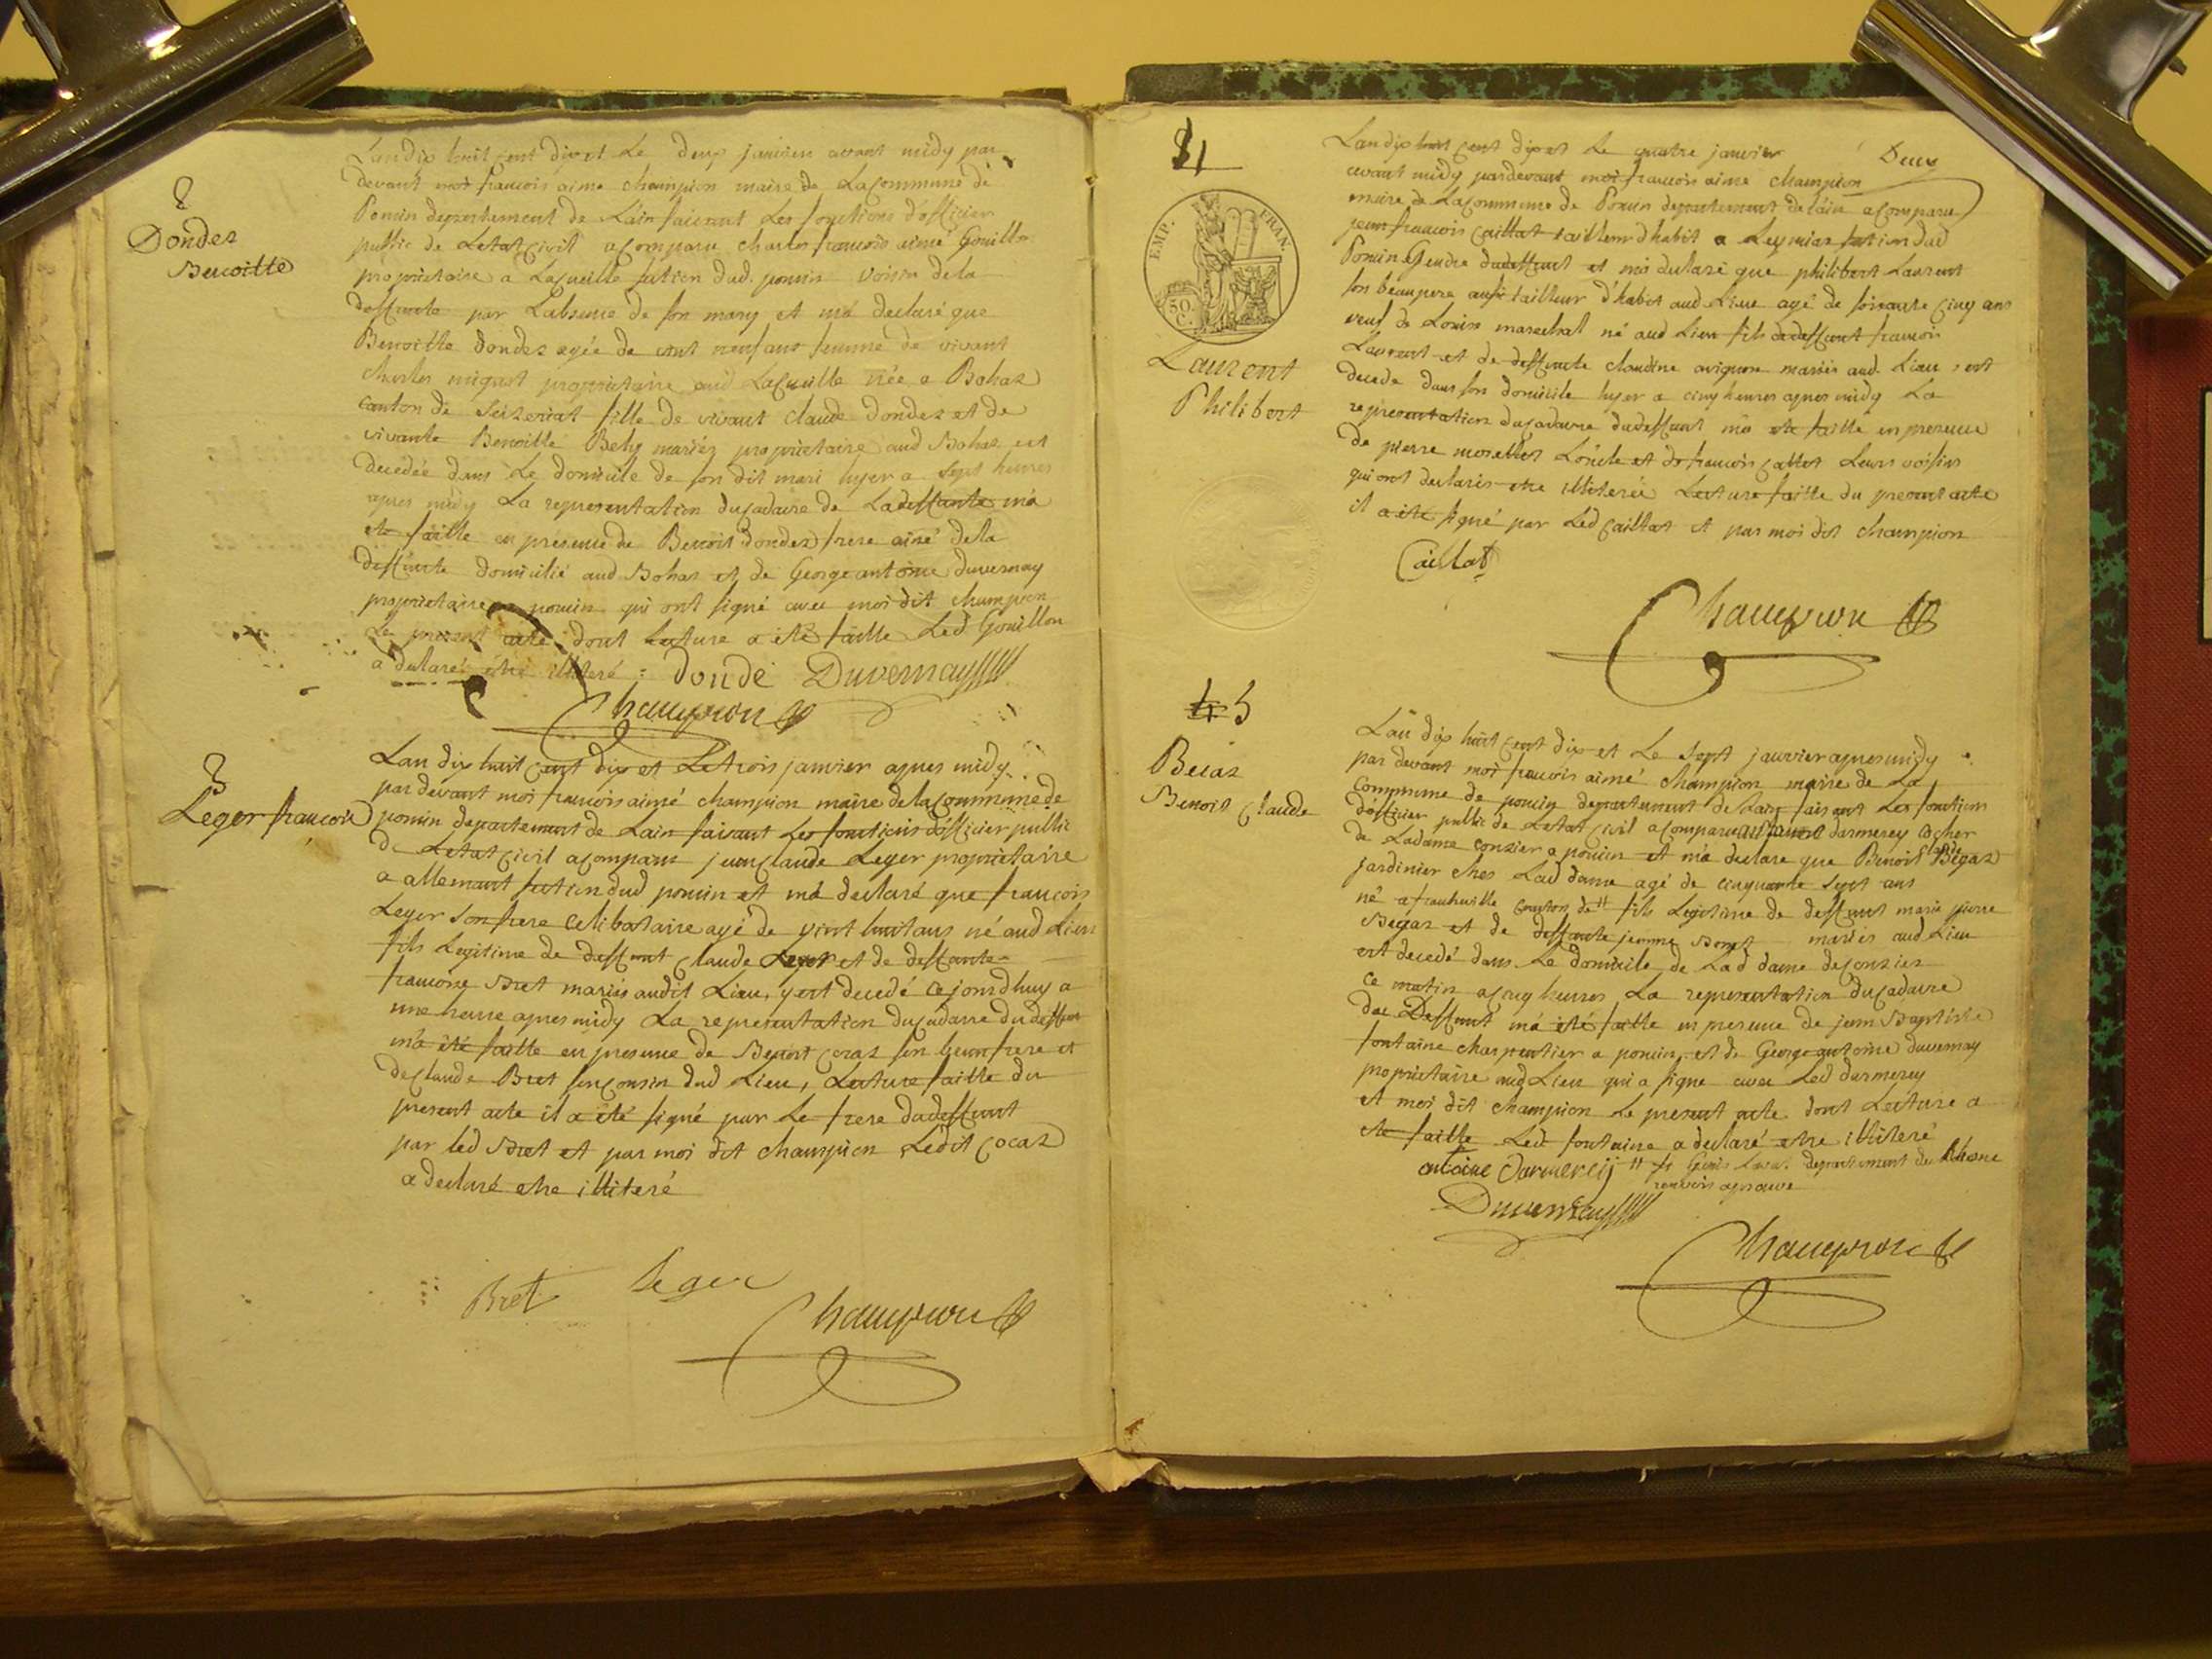 Dondez
Benoitte
Lan dix huit cent dix et Le deux janvier avant midy par
devant moi francois aimé champion maire de La Commune de
Poncin departement de Lain faisant Les fonctions dofficier
public de Letat Civil a Comparu charles francois aimé Gouillon
proprietaire a Lacueille section dud. poncin voisin de la
deffunte par Labsence de son mary et ma declaré que
Benoitte dondez agée de vint neuf ans femme de vivant
charles proprietaire aud Lacueille née a Bohaz
canton de Seizeriat fille de vivant claude dondez et de
vivante Benoitte Bely mariés proprietaire aud Bohaz est
decedée dans Le domicile de son dit mari hyer a sept heures
apres midy La representation du Cadavre de La deffunte ma
eté faitte en presence de Benoit dondez frere ainé de la
deffunte domicilié aud Bohaz et de George antoine duvernay
proprietaire a poncin qui ont signé avec moi dit champion
Le present acte dont Lecture a été faitte Led Gouillon
a declaré etre illiteré :
dondé Duvernay
Champion
Leger francois
Lan dix huit cent dix et Le trois janvier apres midy
par devant moi francois aimé champion maire de la Commune de
poncin departement de Lain faisant Les fonctions dofficier public
de Letat Civil a Comparu jean Claude Leger proprietaire
a allemant section dud poncin et ma declaré que francois
Leger son frere Celibataire agé de vint huit ans né aud Lieu
fils Legitime de deffunt Claude Leger et de deffunte
francoise Bret mariés audit Lieu, y est decedé ce jourdhuy a
une heure apres midy La representation du Cadavre du deffunt
ma été faitte en presence de Benoit Cocaz son beaufrere et
de Claude Bret son Cousin dud Lieu, Lecture faitte du
present acte il a été signé par Le frere du deffunt
par led Bret et par moi dit champion Ledit Cocaz
a declaré etre illiteré
Bret Leger
Champion
EMP. FRAN.
50 C.
Laurent
Philibert
Deux
Lan dix huit cent dix et Le quatre janvier
avant midy pardevant moi francois aimé champion
maire de La Commune de Poncin departement de lain a Comparu
jean francois Caillat tailleur dhabit a Leymiaz section dud
Poncin Gendre du deffunt et ma declaré que philibert Laurent
son beaupere aussi tailleur d'habit aud Lieu agé de soixante cinq ans
veuf de Louise marechal né aud Lieu fils de deffunt francois
Laurent et de deffunte claudine avignon mariés aud. Lieu, est
decedé dans son domicile hyer a cinq heures apres midy La
representation du Cadavre du deffunt ma eté faitte en presence
de pierre morellet Loncle et de francois Callet Leurs voisins
qui ont declarés etre illiterés Lecture faitte du present acte
il a eté signé par Led Caillat et par moi dit champion
Caillat
Champion
5
Begaz
Benoit Claude
Lan dix huit cent dix et Le sept janvier apres midy
par devant moi francois aimé champion maire de La
Commune de poncin departement de Lain faisant Les fonctions
dofficier public de Letat Civil a Comparu antoine darmerey Cocher
de Ladame Conzier a poncin et ma declaré que Benoit Claude Begaz
jardinier chez Lad dame agé de cinquante sept ans
né a francheville canton de # fils Legitime de deffunt marie pierre
Begaz et de deffunte jeanne Bonet mariés aud Lieu
est decedé dans Le domicile de Lad dame de Conzier
ce matin a cinq heures La representation du Cadavre
du Deffunt ma été faitte en presence de jean Baptiste
fontaine charpentier a poncin, et de George antoine duvernay
proprietaire aud Lieu qui a signé avec Led darmerey
et moi dit champion Le present acte dont Lecture a
eté faitte Led fontaine a declaré etre illiteré
antoine Darmerey # St Genis Laval departement du Rhone
renvoi aprouvé
Duvernay
Champion